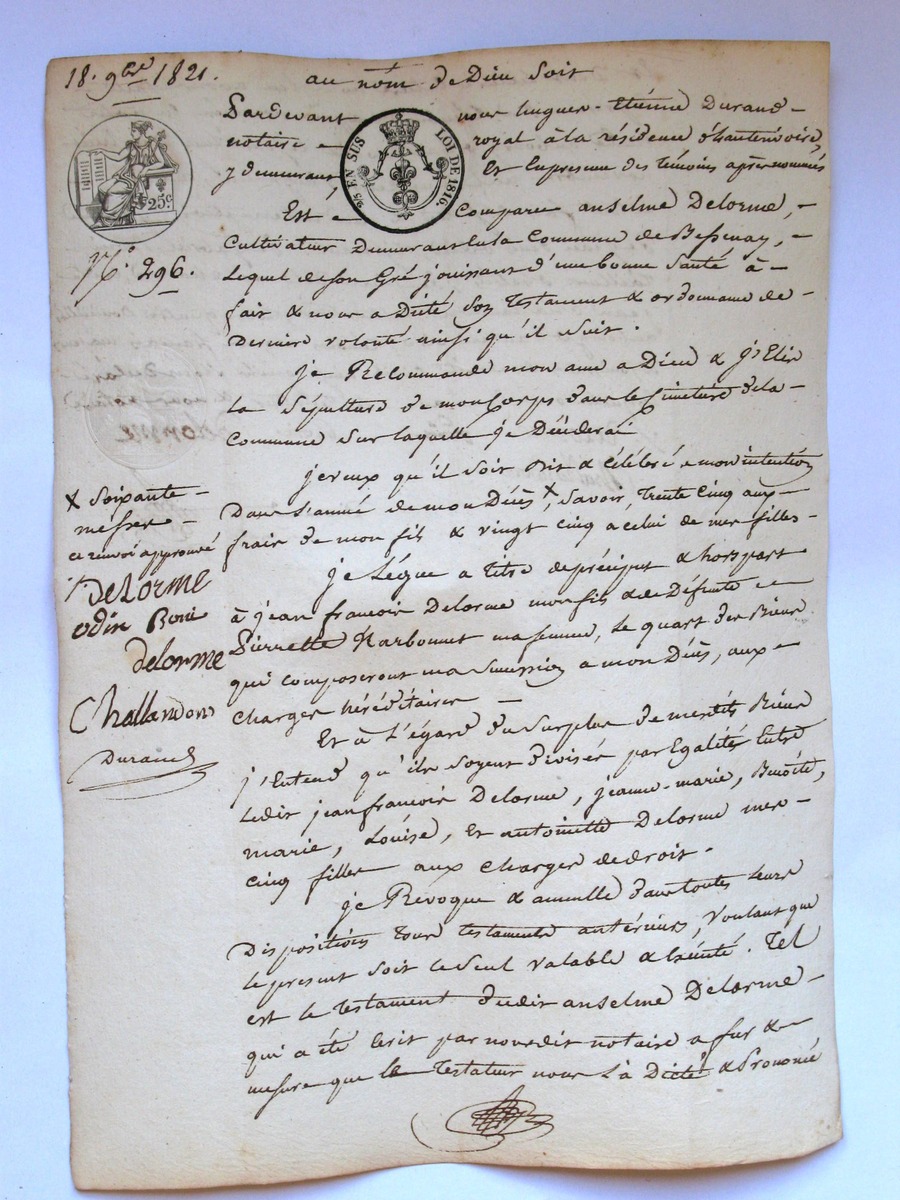 18. 9bre 1821.
au nom de Dieu soit
Pardevant nous hugues-Etienne Durand-
notaire royal à la résidence d'hauterivoire,
y demeurant, Et Enpresence des témoins après nommés
2/5 EN SUS LOI DE 1816.
25c
Est Comparu anselme Delorme,
Cultivateur Demeurant En la Commune de Bessenay,
N.° 296.
Lequel de son Gré jouissant d'une bonne Santé à
fait & nous a Dicté son Testament & ordonnance de
Derniere volonté ainsi qu'il suit.
je Recommande mon ame a Dieu & j'Elis
la Sépulture de mon Corps dans le Cimetiere de la
Commune Sur laquelle je Décéderai
je veux qu'il soit Dit & Célébré a mon intention
Dans l'année de mon Décès X, Savoir, Trente Cinq aux
frais de mon fils & vingt Cinq à celui de mes filles
X Soixante
messes
ce renvoi approuvé
Delorme
odin Boni
delorme
Challandon
Durand
je Légue a Titre de préciput & hors part
à jean françois Delorme mon fils & de Défunte
Pierrette Narbonnet ma femme, Le quart des Biens
qui Composeront ma Succession a mon Décès, aux
Charges héréditaires
Et à L'égard du Surplus de mesdits Biens
j'Entend qu'ils Soyent divisés par Egalités Entre
Ledit jean françois Delorme, jeanne-marie, Benoîte,
marie, Louise, Et antoinette Delorme mes
cinq filles aux Charges de droit.
je Revoque & annulle dans toutes leurs
Dispositions tous testaments antérieurs, Voulant que
le present soit le Seul valable & Exécuté. Tel
est le Testament dudit anselme Delorme
qui a été Ecrit par nousdit notaire a fur &
mesure que le Testateur nous L'a Dicté & Prononcé